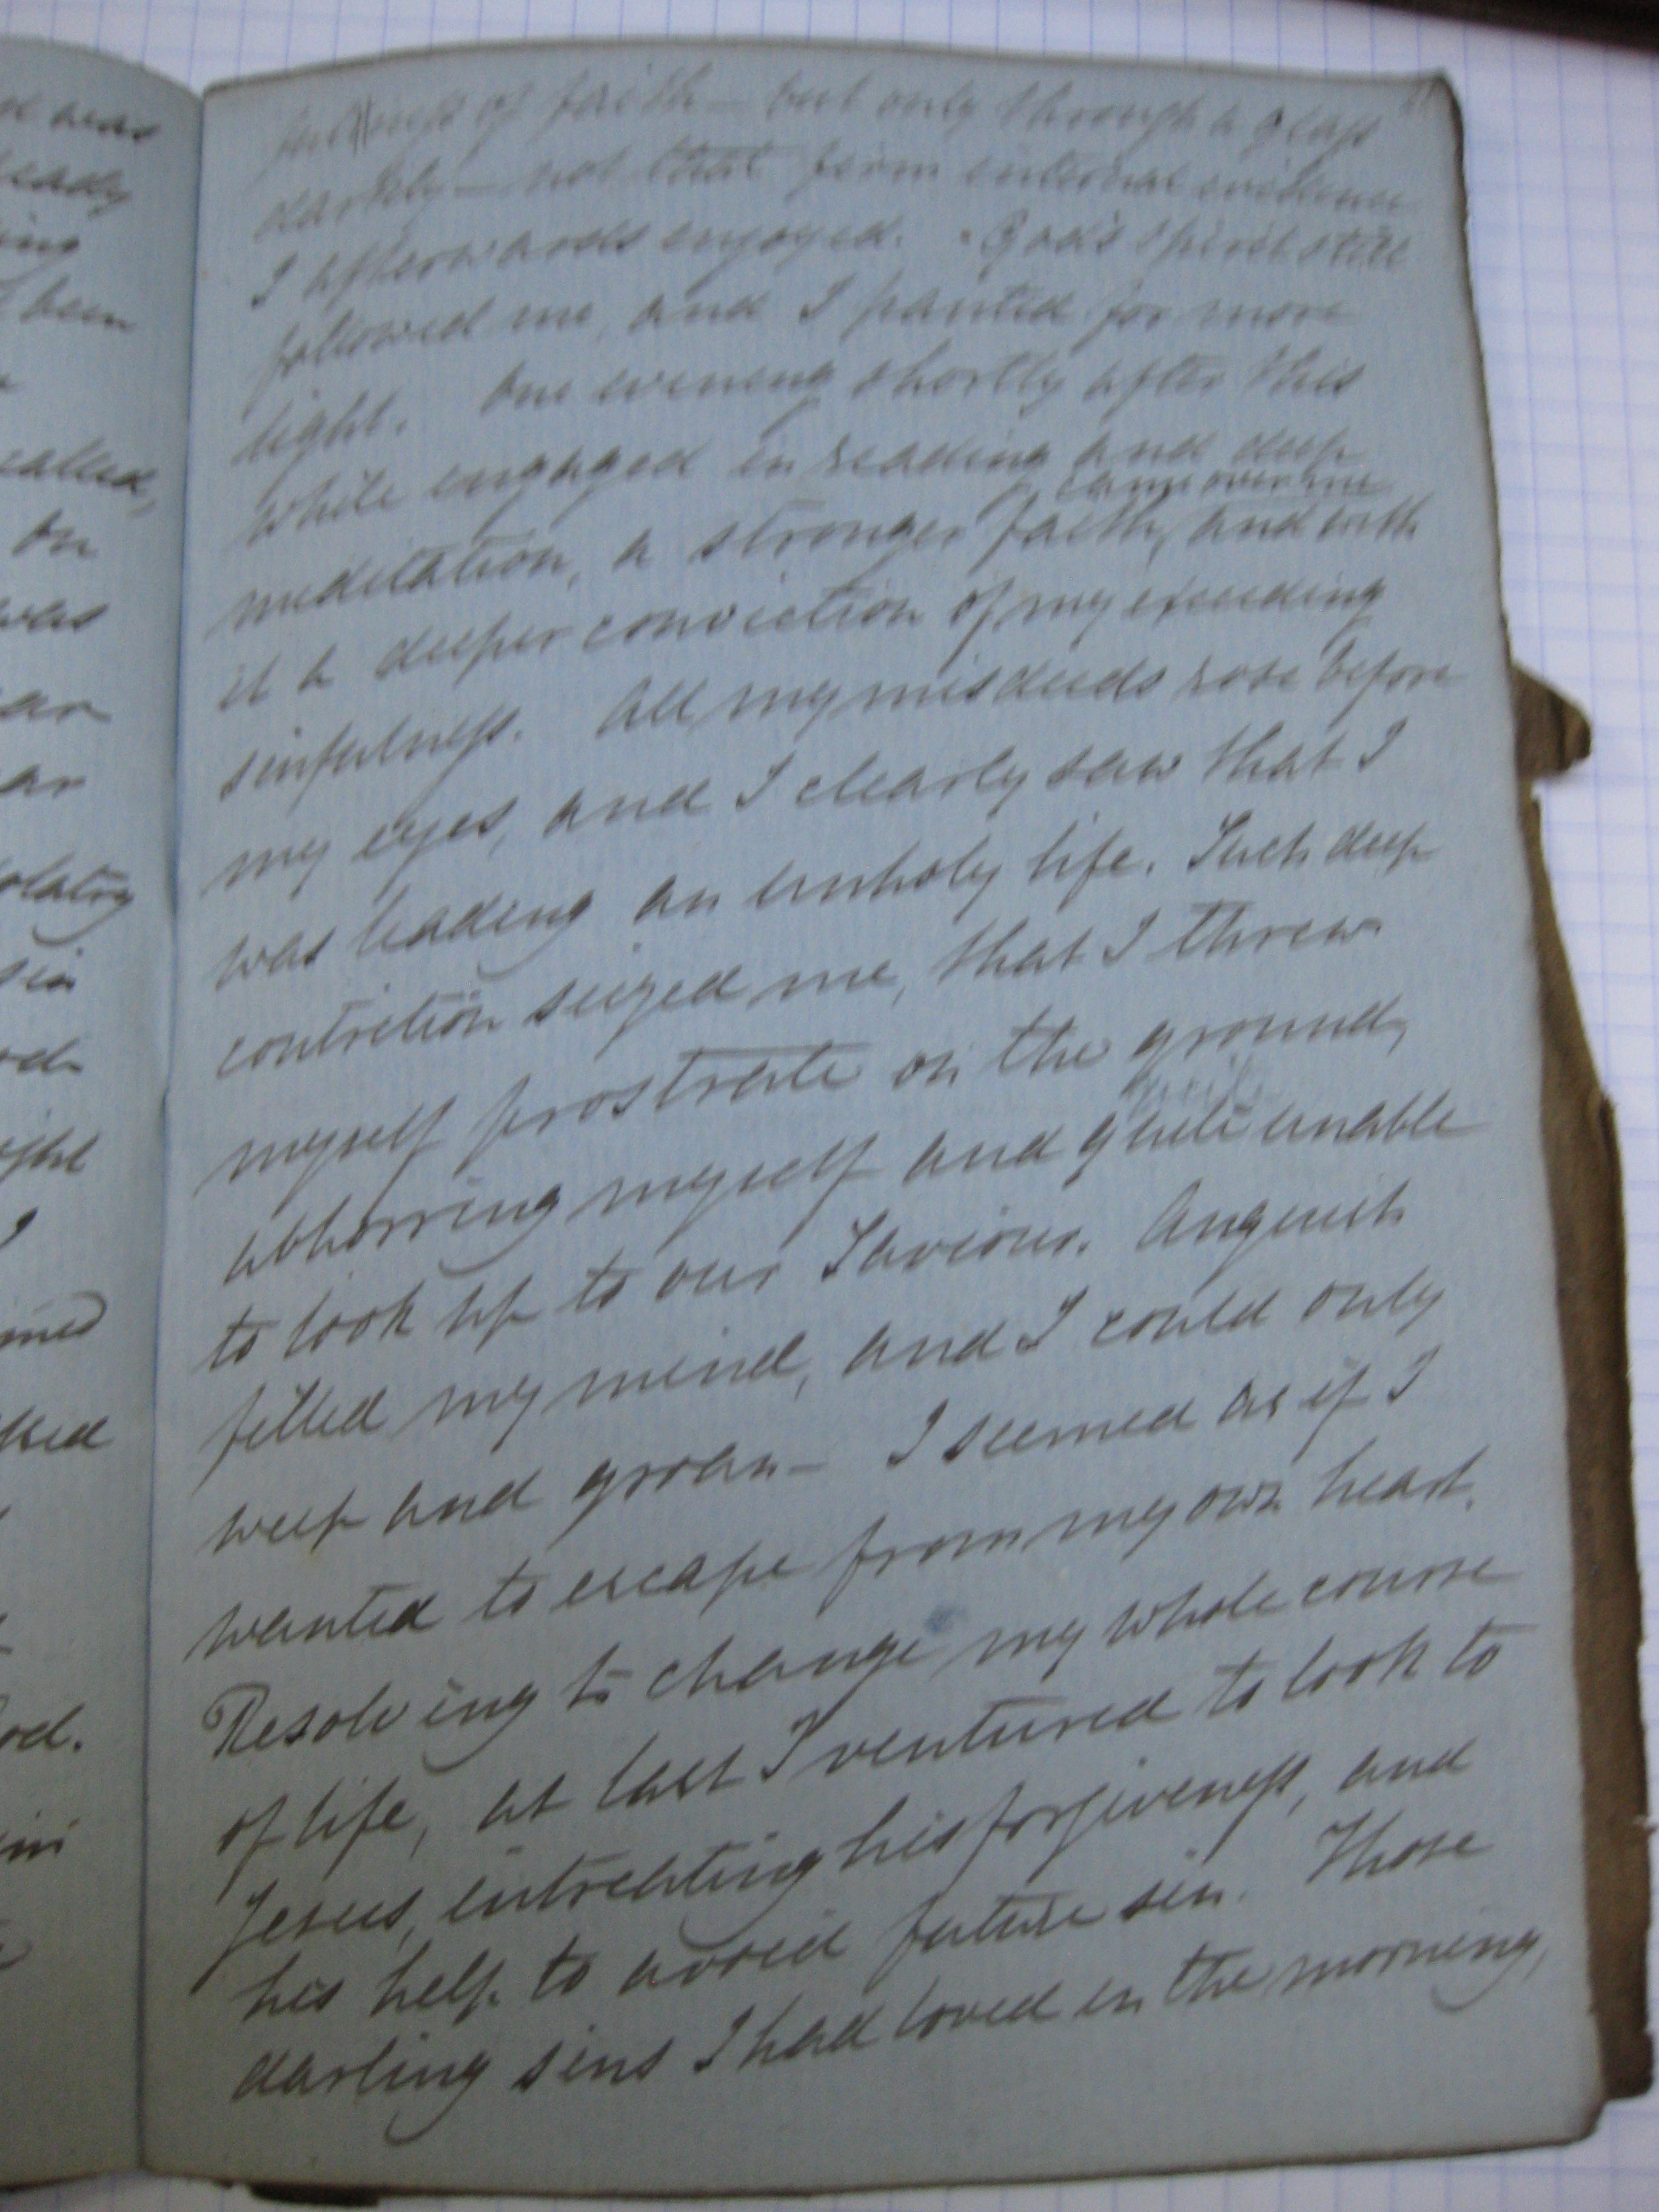 of faith — but only through a glass
darkly — not that firm internal evidence
I afterwards enjoyed. God's spirit still
followed me, and I panted for more
light. One evening shortly after this
while engaged in reading and deep
came over me
meditation, a stronger faith, and with
it a deeper conviction of my exceeding
sinfulness. All my misdeeds rose before
my eyes, and I clearly saw that I
was leading an unholy life. Such deep
contrition seized me, that I threw
myself prostrate on the ground,
abhorring myself and quite unable
to look up to our Saviour. Anguish
filled my mind, and I could only
weep and groan — I seemed as if I
wanted to escape from my own heart.
Resolving to change my whole course
of life, at last I ventured to look to
Jesus, entreating his forgiveness, and
his help to avoid future sin. Those
darling sins I had loved in the morning,